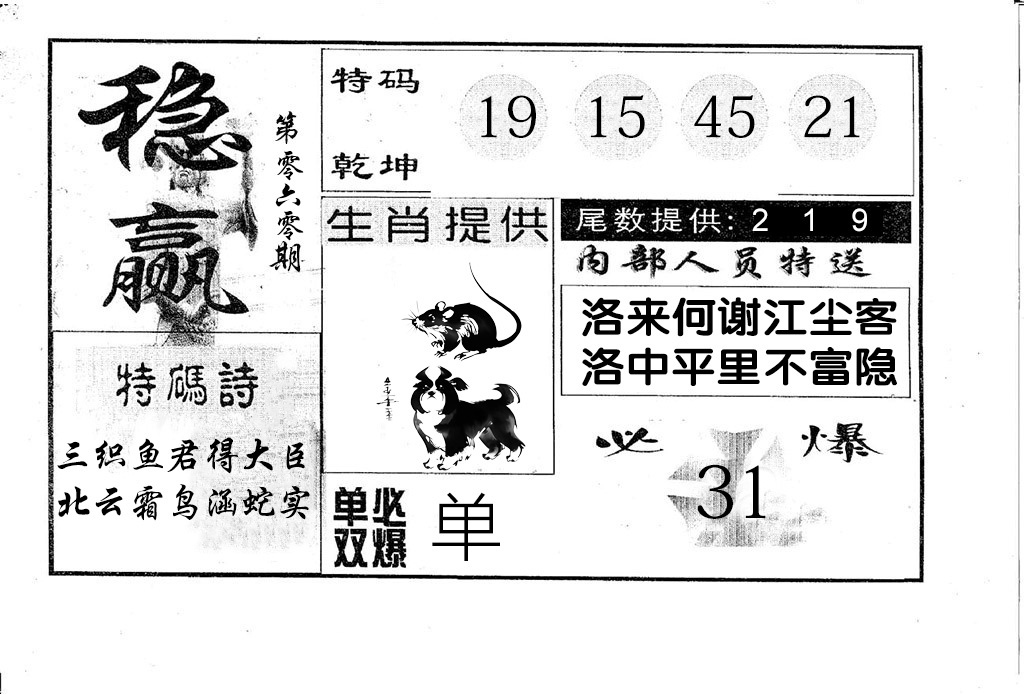 稳赢
第零六零期
特码
乾坤
19 15 45 21
生肖提供
尾数提供: 2 1 9
内部人员特送
洛来何谢江尘客
洛中平里不富隐
特碼詩
三织鱼君得大臣
北云霜鸟涵蛇实
必爆
31
单双
必爆
单